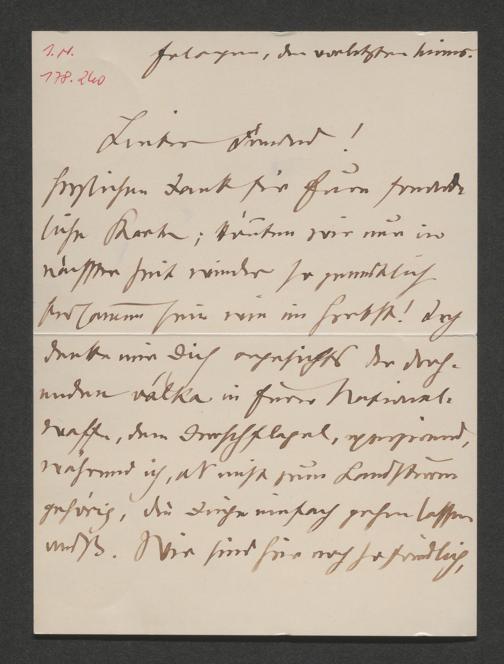 I.N.
178.240
Erlangen, den vorletzten
Lieber Freund!
Herzlichen Dank für Eure freund-
liche Karte; könnten wir nur in
nächster Zeit wieder so gemütlich
zusammen sein wie im Herbst! Ich
denke mir Dich angesichts der droh-
enden války in Eurer National-
waffe, dem Dreschflegel, exerzierend,
während ich, als nicht zum Landsturm
gehörig, die Dinge einfach gehen lassen
muß. Wir sind hier noch so friedlich,